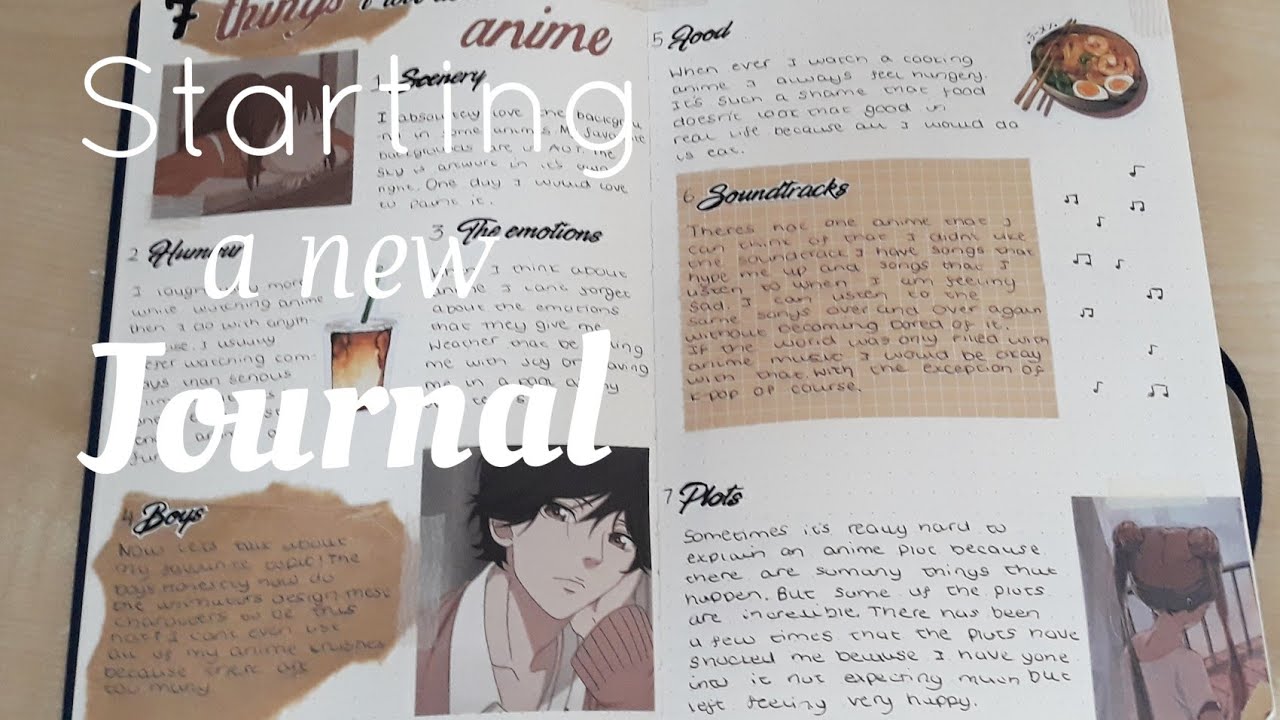 7 things I love
anime
Starting
a new
Journal
1 Scenery
I absolutely love the backgrou
nd in some animes. My favourite
backgrounds are
sky is artwork in it's own
right. One day I would love
to paint it.
2 Humour
I laugh more
while watching anime
then I do with anyth
I usually
watching com
than serious
3 The emotions
When I think about
anime I cant forget
about the emotions
that they give me
Weather that be
me with joy or leaving
me in a pool of my
4 Boys
Now lets talk about
my favourite topic! The
boys honestly how do
the animators design these
characters to be this
hot? I cant even list
all of my anime crushes
because there are
too many
5 Food
When ever I watch a cooking
anime I always feel hungery.
It's such a shame that food
doesn't look that good in
real life because all I would do
is eat.
6 Soundtracks
Theres not one anime that I
can think of that I didnt like
the soundtrack I have songs that
hype me up and songs that I
listen to when I am feeling
sad. I can listen to the
same songs over and over again
without becoming bored of it.
If the world was only filled with
anime music I would be okay
with that. With the exception of
k-pop of course.
7 Plots
Sometimes it's really hard to
explain an anime plot because
there are so many things that
happen. But some of the plots
are incredible. There has been
a few times that the plots have
shocked me because I have gone
into it not expecting much but
left feeling very happy.